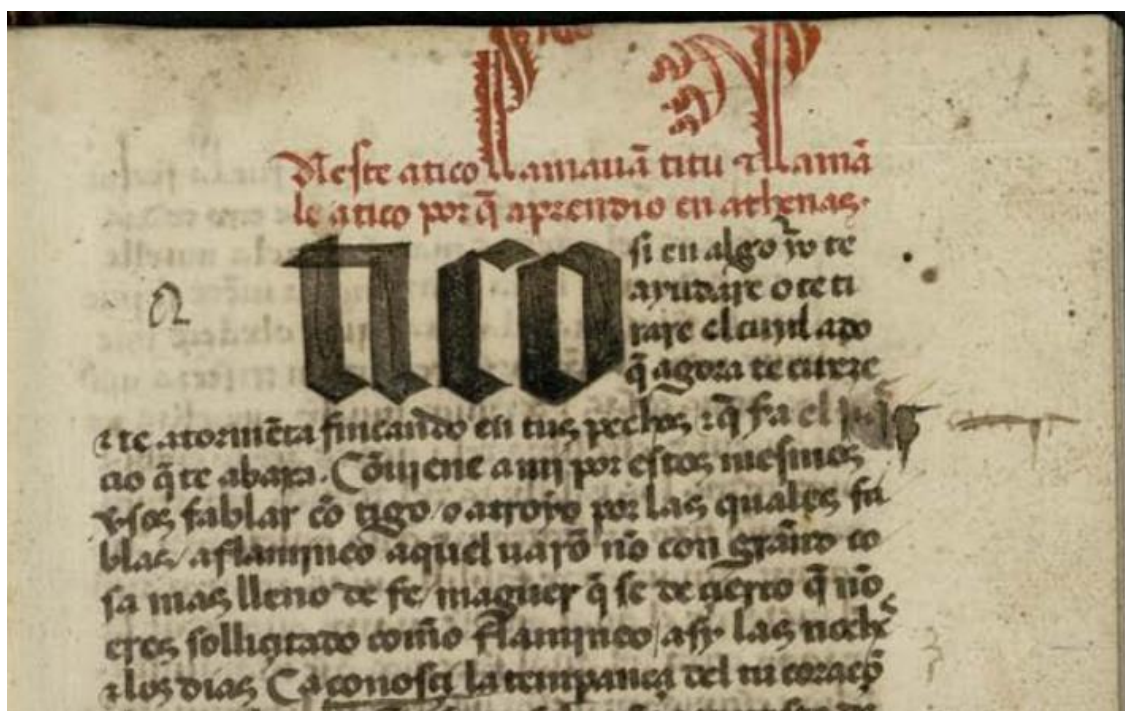 A este atico llamauā titu ⁊ llamā
le atico por q̄ aprendio en athenas.
o
tico si en algo yo te
ayudare o te ti
rare el cuydado
q̄ agora te cueze
⁊ te atormēta fincando en tus pechos ⁊ q̄ sera el p
cio q̄ te abara. Cōuiene a mi por estos mesmos
v̓sos fablar cō tigo / por las quales fa
blas / a flaminico aquel uarō nō con grand co
sa mas lleno de fe / maguer q̄ se de cierto q̄ nō
eres sollicitado como flaminico / asy las noch̓s
⁊ los dias Ca conosci la tempança del tu coraçō